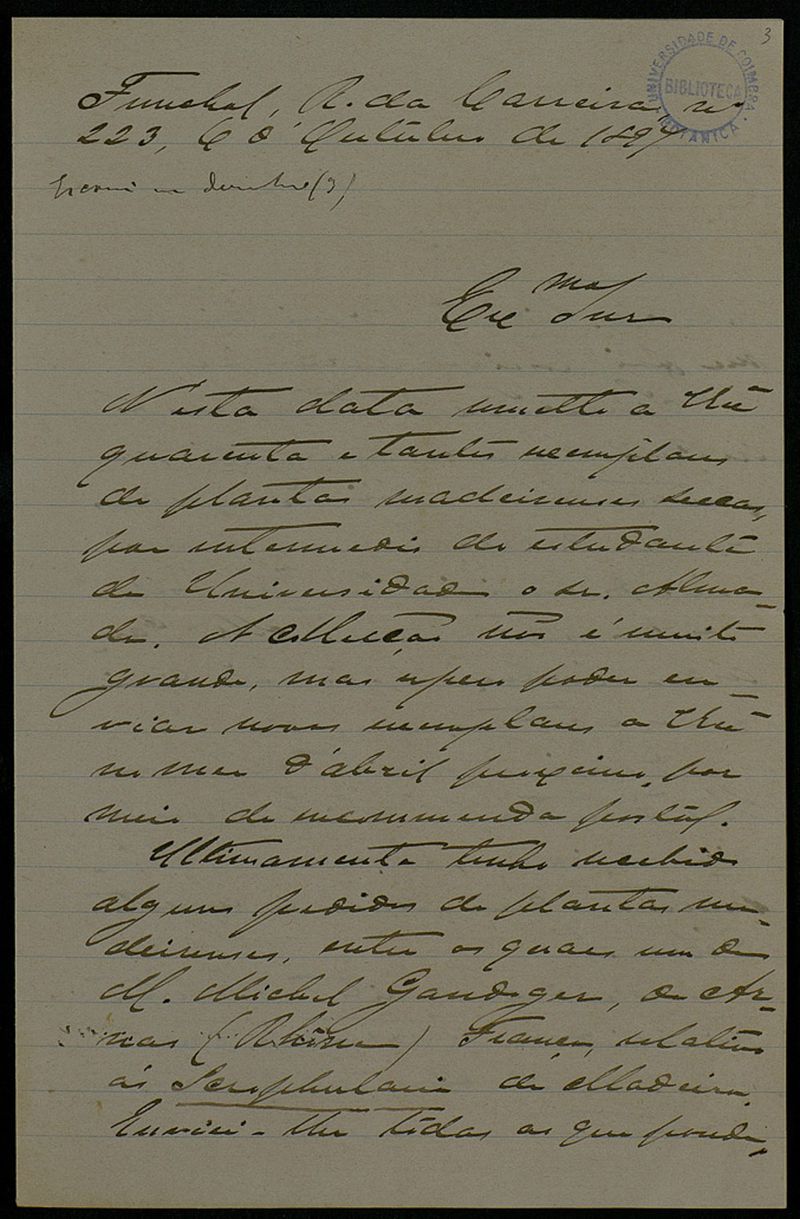 3
UNIVERSIDADE DE COIMBRA
BIBLIOTECA
BOTANICA
Funchal, R. da Carreira, nº
223, 6 d'Outubro de 1897
Exmo Snr
Nesta data remetto a V. Exª
quarenta e tantos exemplares
de plantas madeirenses seccas,
por intermedio do estudante
da Universidade o sr. Alma-
da. A collecção não é muito
grande, mas espero poder en-
viar novos exemplares a V. Exª
no mez d'abril proximo, por
meio de encommenda postal.
Ultimamente tenho recebido
alguns pedidos de plantas ma-
deirenses, entre os quaes um de
M. Michel Gandoger, de Ar-
nas (Rhône) França, relativo
ás Scrophularia da Madeira.
Enviei-lhe todas as que possuia,